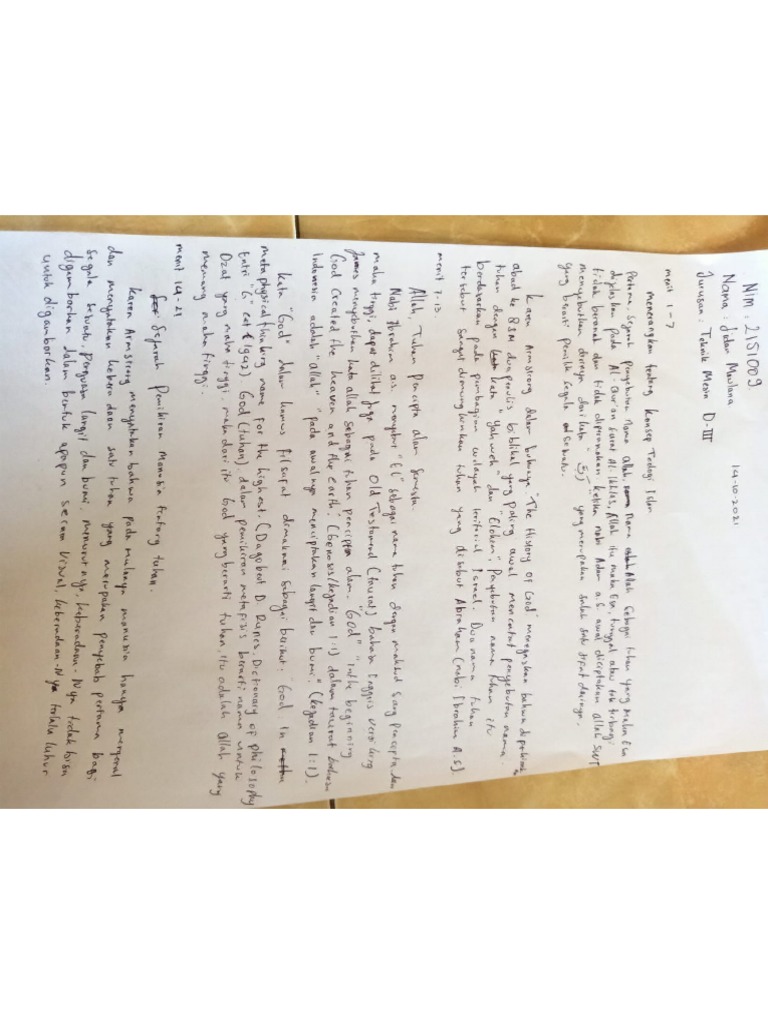 Nim : 2151009
14-10-2021
Nama : Jodan Maulana
Jurusan : Teknik Mesin D-III
menit 1 - 7
menerangkan tentang konsep Teologi Islam
Pertama, sejarah penyebutan Nama Allah. Nama Allah sebagai tuhan yang Maha Esa
dijelaskan pada Al-Quran surat Al-Ikhlas, Allah itu maha Esa, tunggal atau tak terbagi
tidak beranak dan tidak diperanakan ketika nabi Adam a.s. awal diciptakan allah SWT
menyebutkan dirinya dari kata " " yang merupakan salah satu sifat darinya.
yang berarti pemilik segala sesuatu.
Karen Armstrong dalam bukunya "The History of God" menegaskan bahwa diperkirakan
abad ke 8 SM dua penulis biblikal yang paling awal mencatat penyebutan nama
tuhan dengan kata "Yahweh" dan "Elohim". Penyebutan nama tuhan itu
berdasarkan pada pembagian wilayah teritorial Israel. Dua nama tuhan
tersebut sangat dimungkinkan tuhan yang disebut Abraham (nabi Ibrahim A.S).
menit 7-13
Allah, Tuhan Pencipta alam Semesta.
Nabi Ibrahim a.s. menyebut "El" sebagai nama tuhan dengan maksud sang Pencipta dan
maha tinggi, dapat dilihat juga pada Old Testament (taurat) bahasa Inggris versi king
james menyebutkan kata allah sebagai tuhan pencipta alam. "God" "inthe beginning
God Created the heaven and the earth." (Genesis/kejadian 1:1) dalam taurat bahasa
Indonesia adalah "allah" "pada awalnya menciptakan langit dan bumi." (kejadian 1:1).
Kata "God" dalam kamus filsafat dimaknai sebagai berikut. God in
metaphysical thinking name for the highest. (Dagobert D. Runes. Dictionary of philosophy
Entri "G" (1942) God (tuhan), dalam pemikiran metafisis berarti nama untuk
Dzat yang maha tinggi. maka dari itu God yang berarti tuhan, itu adalah allah yang
memang maha tinggi.
menit 14 - 21
Sejarah Pemikiran Manusia tentang tuhan.
Karen Armstrong menyatakan bahwa pada mulanya manusia hanya mengenal
dan menyatakan keberadaan satu tuhan yang merupakan penyebab pertama bagi
segala sesuatu, penguasa langit dan bumi. menurutnya, keberadaan-Nya tidak bisa
digambarkan dalam bentuk apapun secara visual, keberadaan-Nya terlalu luhur
untuk digambarkan.